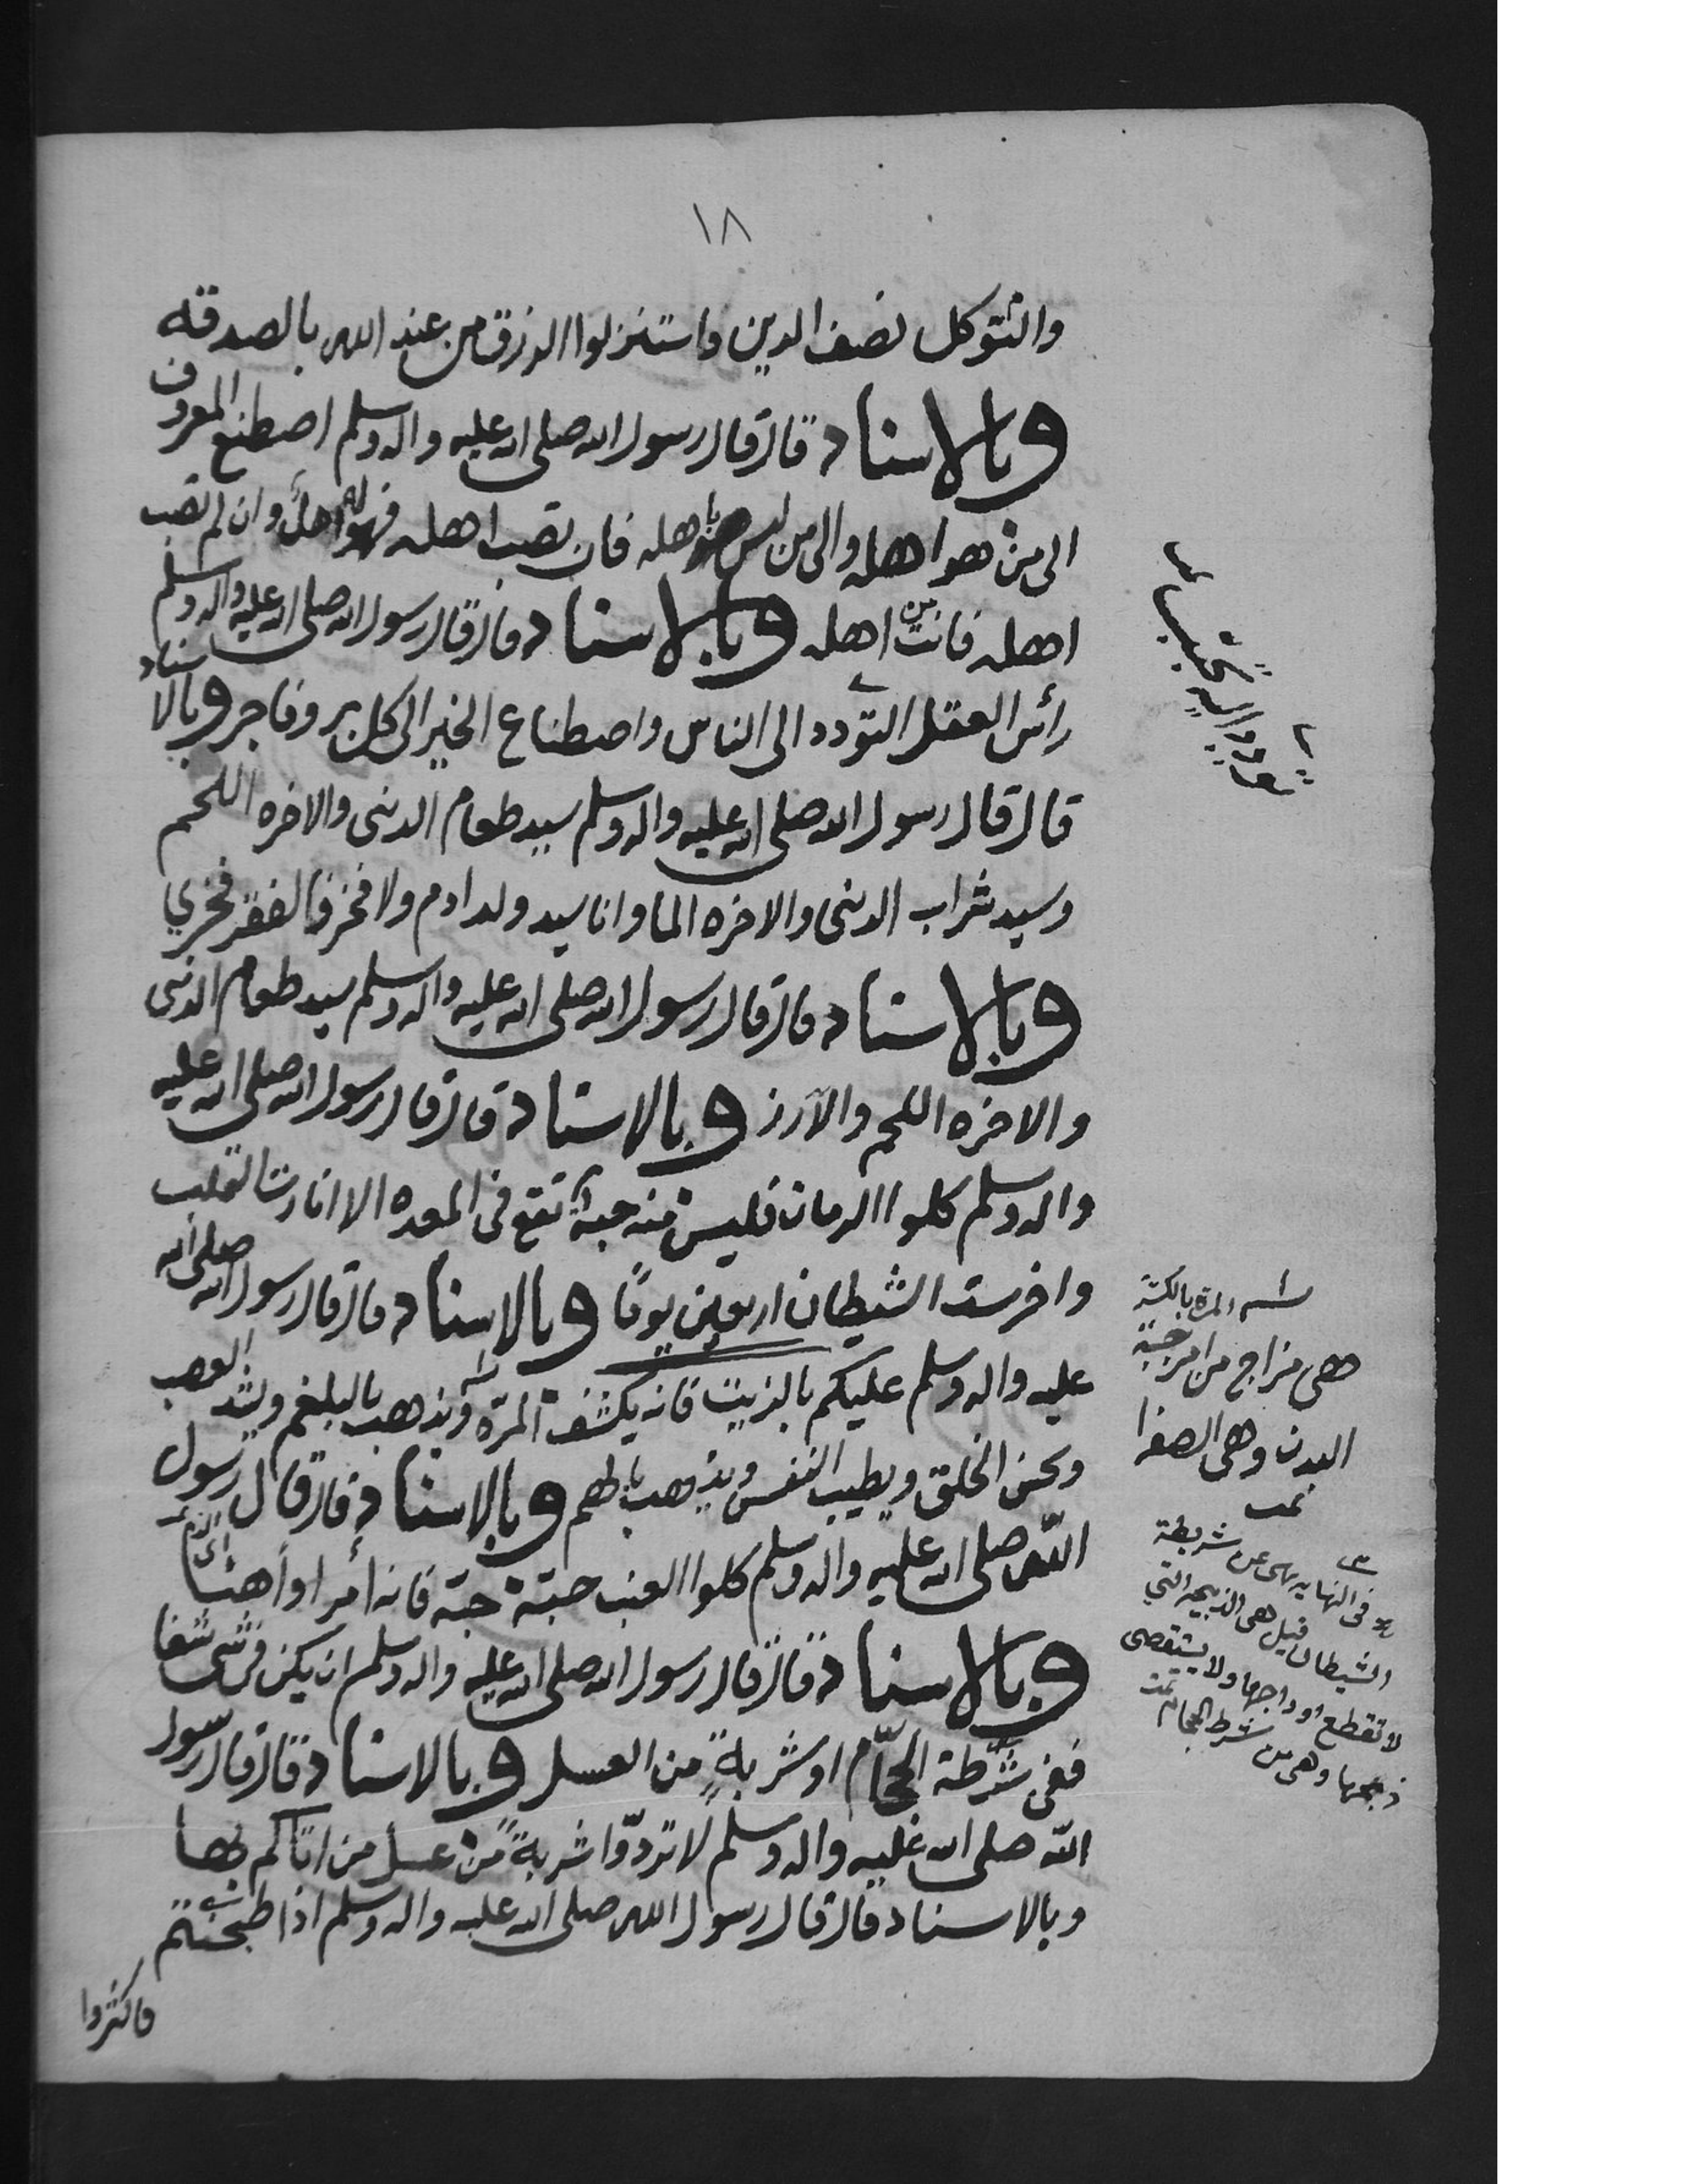 ١٨
والتوكل نصف الدين واستنزلوا الرزق من عند الله بالصدقه
وبالاسناد قال قال رسول الله صلى الله عليه واله وسلم اصطنع المعروف
الى من هو اهله والى من ليس باهله فان تصب اهله فهو له اهلٌ وان لم تصب
اهله فانت من اهله وبالاسناد قال قال رسول الله صلى الله عليه واله وسلم
رأس العقل التودد الى الناس واصطناع الخير الى كل بر وفاجر وبالاسناد
قال قال رسول الله صلى الله عليه واله وسلم سيد طعام الدنى والاخره اللحم
وسيد شراب الدنى والاخره الما وانا سيد ولد ادم ولا فخر فالفقر فخري
وبالاسناد قال قال رسول الله صلى الله عليه واله وسلم سيد طعام الدنى
والاخره اللحم والارز وبالاسناد قال قال رسول الله صلى الله عليه
واله وسلم كلوا الرمان فليس منه حبة تقع في المعده الا انارت القلب
واخرست الشيطان اربعين يومًا وبالاسناد قال قال رسول الله صلى الله
عليه واله وسلم عليكم بالزبيب فانه يكشف المرّة ويذهب بالبلغم ويشد العصب
وبحسن الخلق ويطيب النفس ويذهب بالهم وبالاسناد قال قال رسول
اللّه صلى الله عليه واله وسلم كلوا العنب حبّة حبّة فانه أمرا وأهنا
وبالاسناد قال قال رسول الله صلى الله عليه واله وسلم ان يكن في شي شفا
ففي شرطة الحجّام او شربةٍ من العسل وبالاسناد قال قال رسول
اللّه صلى الله عليه واله وسلم لا تردّوا شربةً من عسل من اتاكم بها
وبالاسناد قال قال رسول الله صلى الله عليه واله وسلم اذا طبختم
فاكثروا
المرة بالكسرة
هي مزاج من امزجة
البدن وهي الصفرا
تمت
في النهايه نهى عن شريطة
الشيطان قيل هي الذبيحه التي
لا تقطع اوداجها ولا يستقصى
ذبحها وهي من شرط الحجام تمت